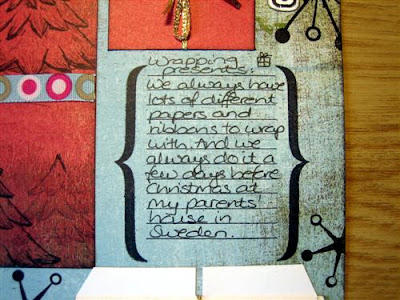 Wrapping
presents:
We always have
lots of different
papers and
ribbons to wrap
with. And we
always do it a
few days before
Christmas at
my parents
house in
Sweden.